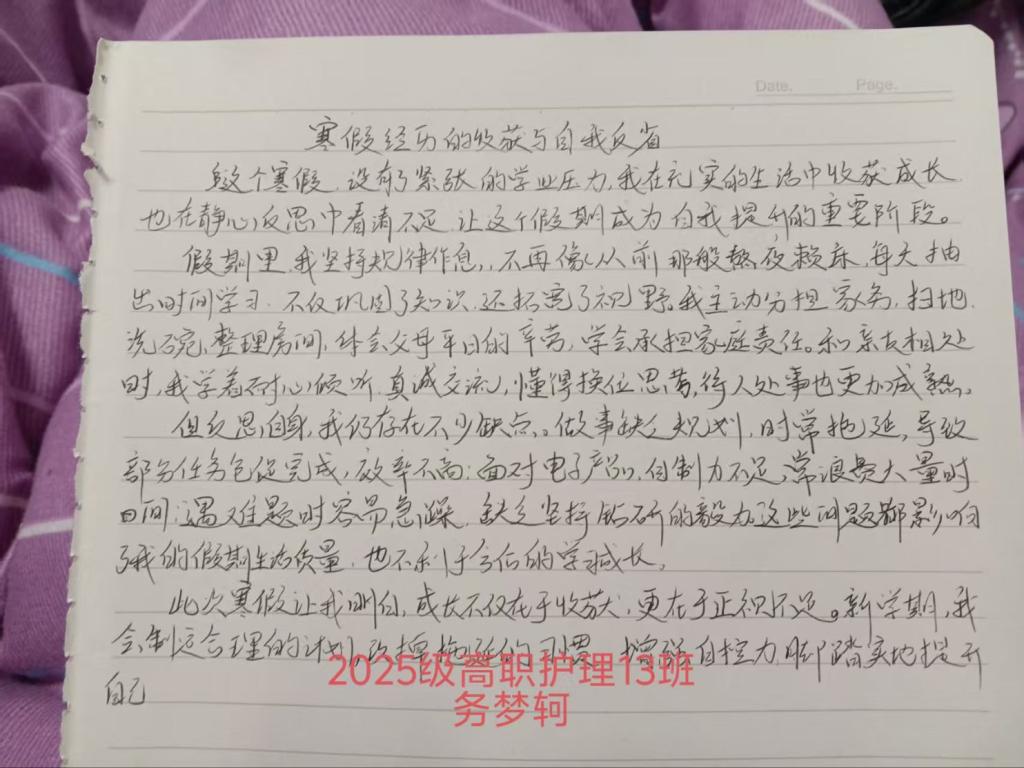 Date.	Page.
寒假经历的收获与自我反省
这个寒假,没有了紧张的学业压力,我在充实的生活中收获成长
也在静心反思中看清不足,让这个假期成为自我提升的重要阶段。
假期里,我坚持规律作息,不再像从前那般熬夜赖床,每天抽
出时间学习,不仅巩固了知识,还拓宽了视野。我主动分担家务,扫地、
洗碗,整理房间,体会父母平日的辛劳,学会承担家庭责任。和亲友相处
时,我学着耐心倾听,真诚交流,懂得换位思考,待人处事也更加成熟。
但反思自身,我仍存在不少缺点。做事缺乏规划,时常拖延,导致
部分任务仓促完成,效率不高;面对电子产品,自制力不足,常浪费大量时
间;遇难题时容易急躁,缺乏坚持钻研的毅力,这些问题都影响
了我的假期生活质量,也不利于今后的学成长。
此次寒假让我明白,成长不仅在于收获,更在于正视不足。新学期,我
会制定合理的计划,改掉拖延的习惯,增强自控力,脚踏实地提升
自己
2025级高职护理13班
务梦轲